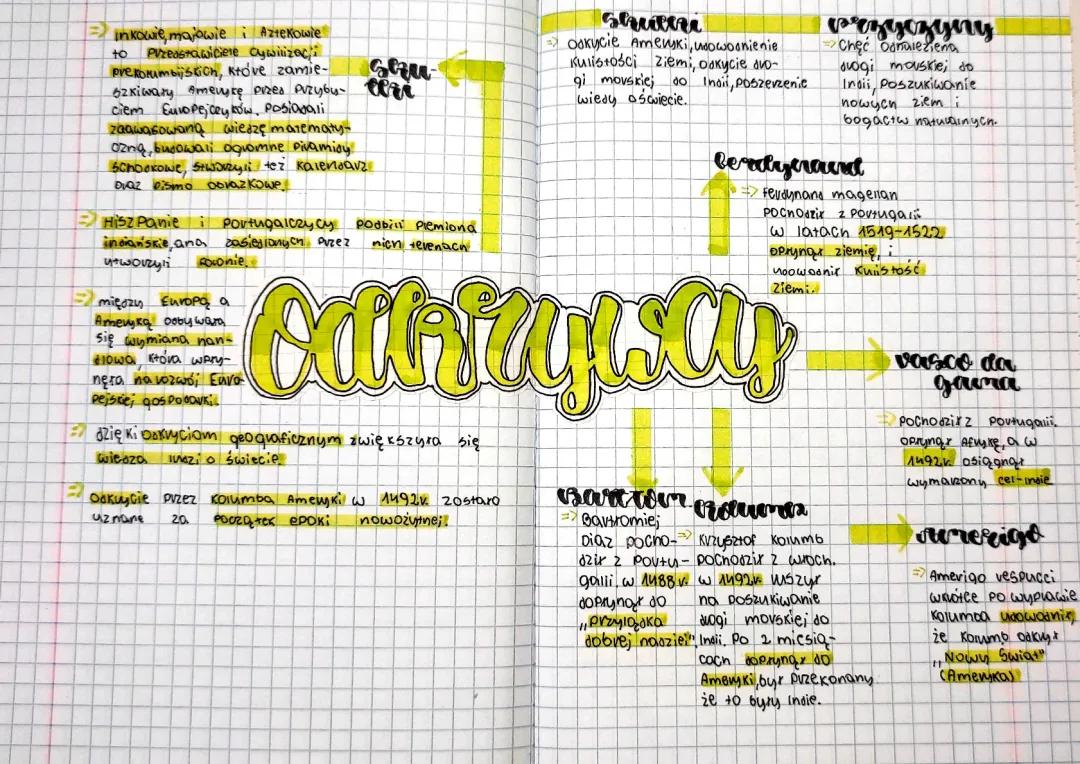 Inkowie, majowie i Aztekowie
to Przedstawiciele cywilizacji
prekolumbijskich, które zamie-
szkiwały Amerykę przed Przyby-
ciem Europejczyków. Posiadali
zaawasowaną wiedzę matematy-
czną, budowali ogromne Piramidy
schodkowe, stworzyli też kalendarz
oraz Pismo obrazkowe.
Sku-
tki
Hiszpanie i Portugalczycy podbili Plemiona
indiańskie, a na zasiedlonych przez nich terenach
utworzyli kolonie.
między Europą a
Ameryką odbywała
się wymiana han-
dlowa, która wpły-
nęła na rozwój Euro-
pejskiej gospodarki.
dzięki odkryciom geograficznym zwiększyła się
wiedza ludzi o świecie.
Odkrycie przez Kolumba Ameryki w 1492r. zostało
uznane za Początek epoki nowożytnej.
Odkrywcy
Skutki
Odkycie Ameryki, udowodnienie
kulistości ziemi, odkycie dro-
gi morskiej do Indii, poszerzenie
wiedy o świecie.
Przyczyny
Chęć odnaleziena
drogi morskiej do
Indii, Poszukiwanie
nowych ziem i
bogactw naturalnych.
Ferdynand
Ferdynand magellan
pochodził z Portugalii
w latach 1519-1522
opłynął ziemię, i
udowodnił kulistość
ziemi.
Vasco da
gama
Pochodził z Portugalii.
opłynął Afrykę, a w
1492r. osiągnął
wymarzony cel-indie
Bartłom
Bartłomiej
Diaz pocho-
dził z Portu-
galii. w 1488r.
dopłynął do
„Przylądka
dobrej nadziei".
Kolumb
Krzysztof Kolumb
pochodził z włoch.
w 1492r. wszył
na poszukiwanie
drogi morskiej do
Indii. Po 2 miesią-
cach dopłynął do
Ameryki, był przekonany
że to były Indie.
Amerigo
Amerigo vespucci
wkrótce po wyprawie
Kolumba udowodnił,
że Kolumb odkrył
„Nowy świat"
(Ameryka)